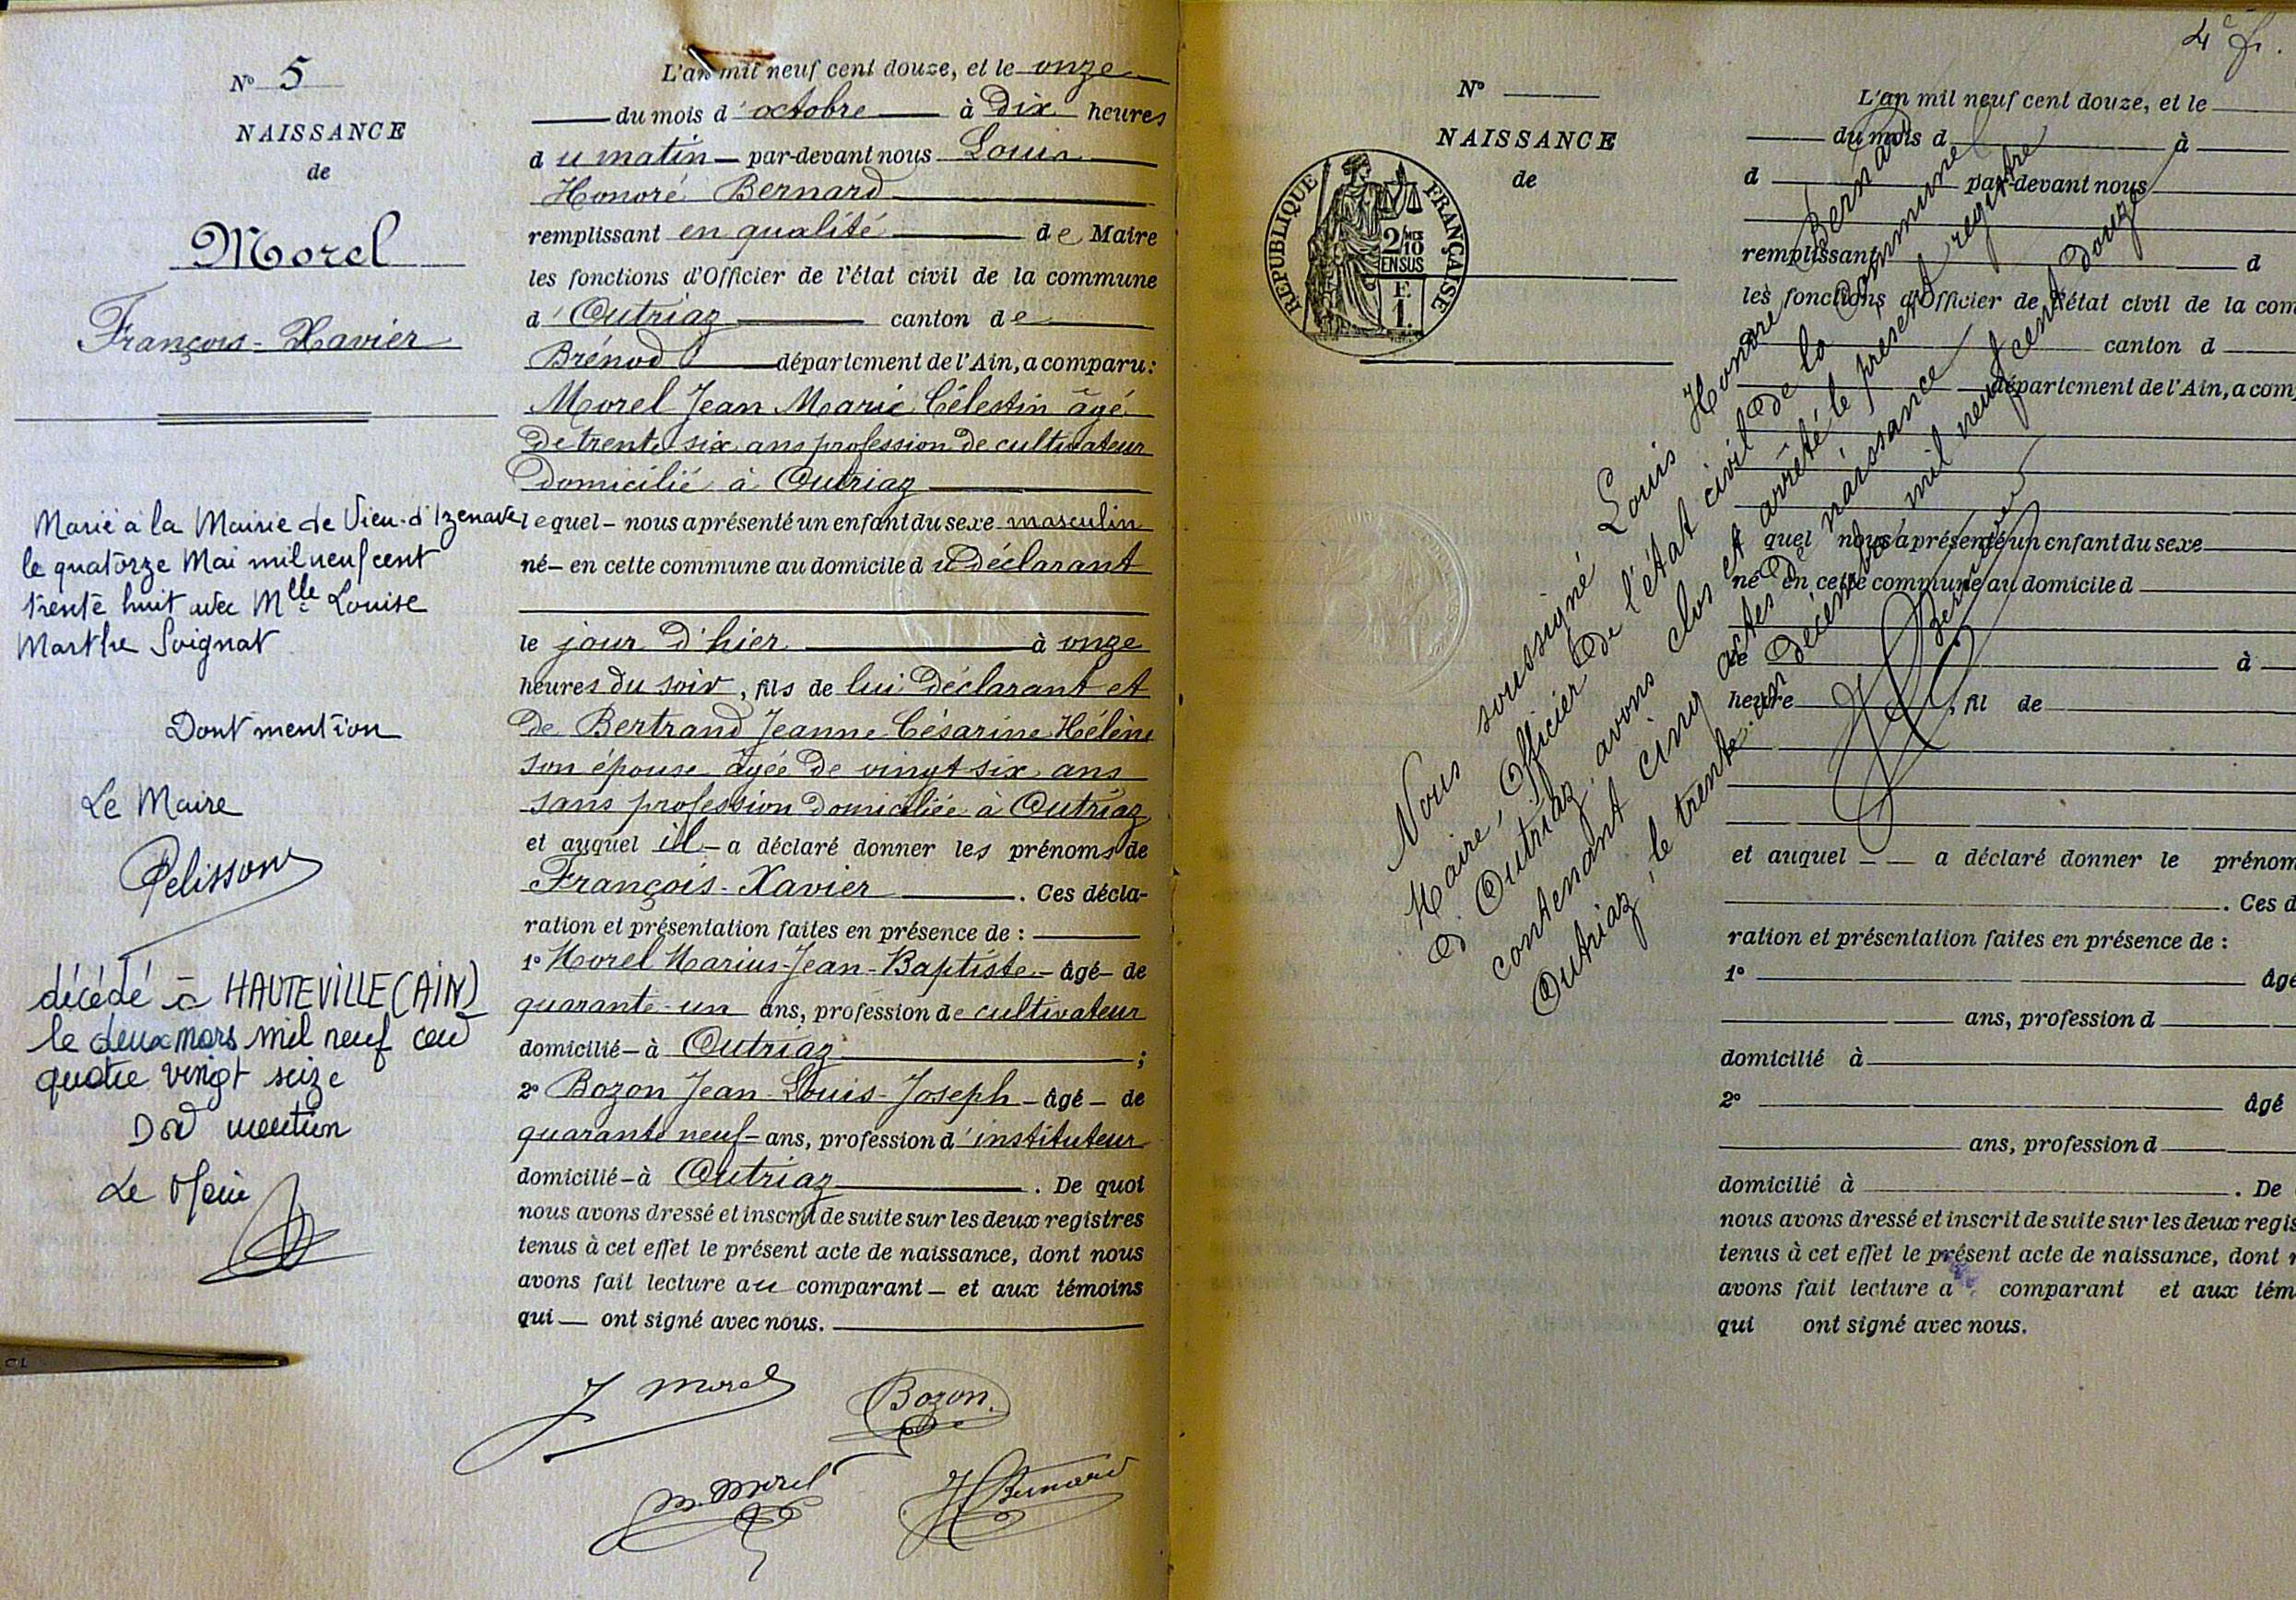 N° 5
NAISSANCE
de
Morel
François-Xavier
Marié à la Mairie de Vieu-d'Izenave
le quatorze Mai mil neuf cent
trente huit avec Mlle Louise
Marthe Soignat
Dont mention
Le Maire
Pelisson
décédé à HAUTEVILLE (AIN)
le deux mars mil neuf cent
quatre vingt seize
Dont mention
Le Maire
L'an mil neuf cent douze, et le onze
du mois d'octobre à Dix heures
du matin par-devant nous Louis
Honoré Bernard
remplissant en qualité de Maire
les fonctions d'Officier de l'état civil de la commune
d'Outriaz canton de
Brénod département de l'Ain, a comparu:
Morel Jean Marie Célestin âgé
de trente six ans profession de cultivateur
Domicilié à Outriaz
lequel nous a présenté un enfant du sexe masculin
né en cette commune au domicile du Déclarant
le jour d'hier à onze
heures du soir, fils de lui Déclarant et
de Bertrand Jeanne Césarine Hélène
son épouse âgée de vingt six ans
sans profession domiciliée à Outriaz
et auquel il a déclaré donner les prénoms de
François-Xavier. Ces décla-
ration et présentation faites en présence de :
1° Morel Marius-Jean-Baptiste âgé de
quarante-un ans, profession de cultivateur
domicilié à Outriaz ;
2° Bozon Jean-Louis-Joseph âgé de
quarante neuf ans, profession d'instituteur
domicilié à Outriaz. De quoi
nous avons dressé et inscrit de suite sur les deux registres
tenus à cet effet le présent acte de naissance, dont nous
avons fait lecture au comparant et aux témoins
qui ont signé avec nous.
J Morel
Bozon.
M. Morel
H Bernard
4e f.
N°
NAISSANCE
de
RÉPUBLIQUE FRANÇAISE
2/10 MES
EN SUS
F.
1.
L'an mil neuf cent douze, et le
du mois d à
d par-devant nous
remplissant d
les fonctions d'Officier de l'état civil de la com
canton d
département de l'Ain, a com
quel nous a présenté un enfant du sexe
né en cette commune au domicile d
le à
heure, fil de
et auquel a déclaré donner le prénom
. Ces d
ration et présentation faites en présence de :
1° âgé
ans, profession d
domicilié à
2° âgé
ans, profession d
domicilié à . De
nous avons dressé et inscrit de suite sur les deux regis
tenus à cet effet le présent acte de naissance, dont n
avons fait lecture a comparant et aux tém
qui ont signé avec nous.
Nous soussigné Louis Honoré Bernard
Maire, Officier de l'état civil de la Commune
d'Outriaz, avons clos et arrêté le présent registre
contenant cinq actes de naissance
Outriaz, le trente-un Décembre mil neuf cent douze
H Bernard